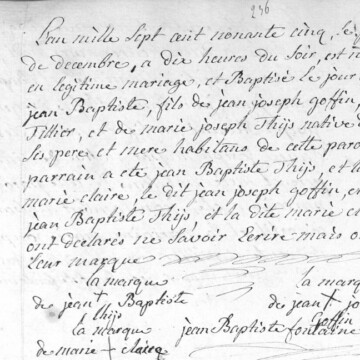 236
L'an mille sept cent nonante cinq, le
de decembre, a dix heures du soir, est n
en legitime mariage, et Baptisé le jour
jean Baptiste, fils de jean joseph goffin
Tillier, et de marie joseph Thijs native d
Ses pere et mere habitans de cette paro
parrain a eté jean Baptiste Thijs, et la
marie claire, le dit jean joseph goffin, e
jean Baptiste Thijs, et la dite marie c
ont dèclarés ne Savoir Ecrire mais o
Leur marque
La marque
de jean + Baptiste
Thijs
La marque
de marie + claire
la marq
de jean + jos
goffin
jean Baptiste fontaine